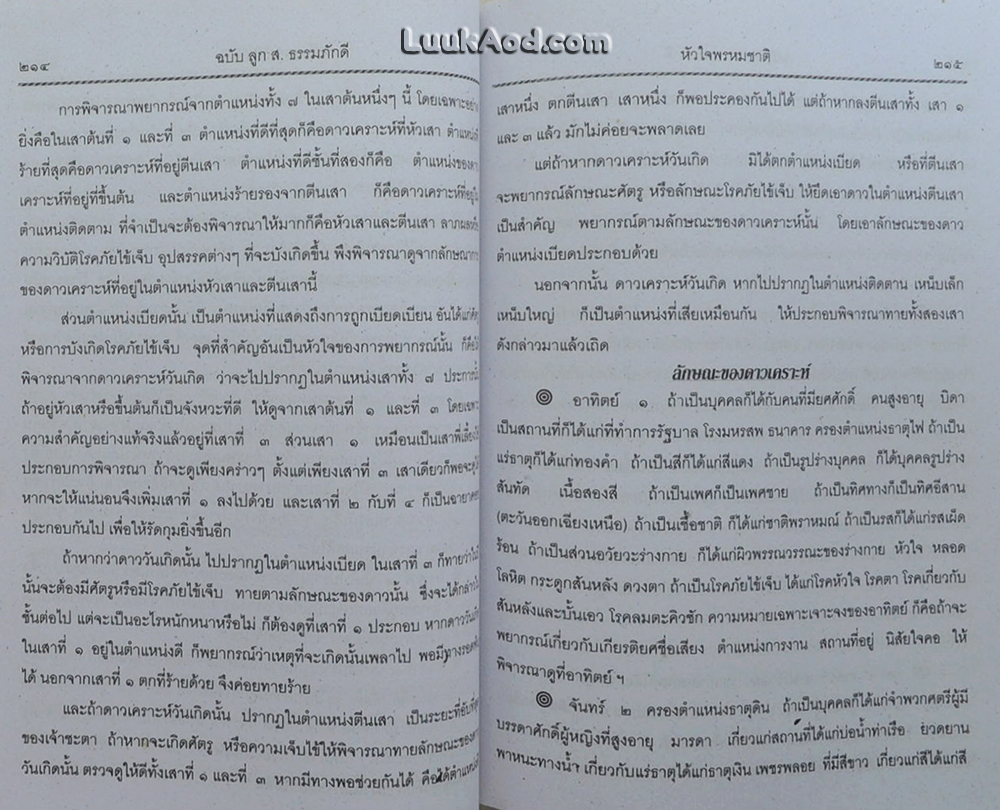 LuukAod.com
๒๑๔
ฉบับ ลูก ส. ธรรมภักดี
การพิจารณาพยากรณ์จากตำแหน่งทั้ง ๗ ในเสาต้นหนึ่งๆ นี้ โดยเฉพาะอย่าง
ยิ่งคือในเสาต้นที่ ๑ และที่ ๓ ตำแหน่งที่ดีที่สุดก็คือดาวเคราะห์ที่หัวเสา ตำแหน่งที่
ร้ายที่สุดคือดาวเคราะห์ที่อยู่ตีนเสา ตำแหน่งที่ดีชั้นที่สองก็คือ ตำแหน่งของดาว
เคราะห์ที่อยู่ที่ขึ้นต้น และตำแหน่งร้ายรองจากตีนเสา ก็คือดาวเคราะห์ที่อยู่ใน
ตำแหน่งติดตาม ที่จำเป็นจะต้องพิจารณาให้มากก็คือหัวเสาและตีนเสา ลาภผล
ความวิบัติโรคภัยไข้เจ็บ อุปสรรคต่างๆ ที่จะบังเกิดขึ้น พึงพิจารณาดูจากลักษณะ
ของดาวเคราะห์ที่อยู่ในตำแหน่งหัวเสาและตีนเสานี้
ส่วนตำแหน่งเบียดนั้น เป็นตำแหน่งที่แสดงถึงการถูกเบียดเบียน อันได้แก่
หรือการบังเกิดโรคภัยไข้เจ็บ จุดที่สำคัญอันเป็นหัวใจของการพยากรณ์นั้น ก็คือ
พิจารณาจากดาวเคราะห์วันเกิด ว่าจะไปปรากฏในตำแหน่งเสาทั้ง ๗ ประการนี้
ถ้าอยู่หัวเสาหรือขึ้นต้นก็เป็นจังหวะที่ดี ให้ดูจากเสาต้นที่ ๑ และที่ ๓ โดยเฉพาะ
ความสำคัญอย่างแท้จริงแล้วอยู่ที่เสาที่ ๓ ส่วนเสา ๑ เหมือนเป็นเสาพี่เลี้ยง
ประกอบการพิจารณา ถ้าจะดูเพียงคร่าวๆ ตั้งแต่เพียงเสาที่ ๓ เสาเดียวก็พอจะ
หากจะให้แน่นอนจึงเพิ่มเสาที่ ๑ ลงไปด้วย และเสาที่ ๒ กับที่ ๔ ก็เป็น
ประกอบกันไป เพื่อให้รัดกุมยิ่งขึ้นอีก
ถ้าหากว่าดาววันเกิดนั้น ไปปรากฏในตำแหน่งเบียด ในเสาที่ ๓ ก็ทายว่า
นั้นจะต้องมีศัตรูหรือมีโรคภัยไข้เจ็บ ทายตามลักษณะของดาวนั้น ซึ่งจะได้กล่าว
ขั้นต่อไป แต่จะเป็นอะไรหนักหนาหรือไม่ ก็ต้องดูที่เสาที่ ๑ ประกอบ หากดาววันเกิด
ในเสาที่ ๑ อยู่ในตำแหน่งดี ก็พยากรณ์ว่าเหตุที่จะเกิดนั้นเพลาไป พอมีทางรอด
ได้ นอกจากเสาที่ ๑ ตกที่ร้ายด้วย จึงค่อยทายร้าย
และถ้าดาวเคราะห์วันเกิดนั้น ปรากฏในตำแหน่งตีนเสา เป็นระยะที่อับที่สุด
ของเจ้าชะตา ถ้าหากจะเกิดศัตรู หรือความเจ็บไข้ให้พิจารณาทายลักษณะของ
วันเกิดนั้น ตรวจดูให้ดีทั้งเสาที่ ๑ และที่ ๓ หากมีทางพอช่วยกันได้ คือได้ตำแหน่ง
หัวใจพรหมชาติ
๒๑๕
เสาหนึ่ง ตกตีนเสา เสาหนึ่ง ก็พอประคองกันไปได้ แต่ถ้าหากลงตีนเสาทั้ง เสา ๑
และ ๓ แล้ว มักไม่ค่อยจะพลาดเลย
แต่ถ้าหากดาวเคราะห์วันเกิด มิได้ตกตำแหน่งเบียด หรือที่ตีนเสา
จะพยากรณ์ลักษณะศัตรู หรือลักษณะโรคภัยไข้เจ็บ ให้ยึดเอาดาวในตำแหน่งตีนเสา
เป็นสำคัญ พยากรณ์ตามลักษณะของดาวเคราะห์นั้น โดยเอาลักษณะของดาว
ตำแหน่งเบียดประกอบด้วย
นอกจากนั้น ดาวเคราะห์วันเกิด หากไปปรากฏในตำแหน่งติดตาน เหน็บเล็ก
เหน็บใหญ่ ก็เป็นตำแหน่งที่เสียเหมือนกัน ให้ประกอบพิจารณาทายทั้งสองเสา
ดังกล่าวมาแล้วเถิด
ลักษณะของดาวเคราะห์
อาทิตย์ ๑ ถ้าเป็นบุคคลก็ได้กับคนที่มียศศักดิ์ คนสูงอายุ บิดา
เป็นสถานที่ก็ได้แก่ที่ทำการรัฐบาล โรงมหรสพ ธนาคาร ครองตำแหน่งธาตุไฟ ถ้าเป็น
แร่ธาตุก็ได้แก่ทองคำ ถ้าเป็นสีก็ได้แก่สีแดง ถ้าเป็นรูปร่างบุคคล ก็ได้บุคคลรูปร่าง
สันทัด เนื้อสองสี ถ้าเป็นเพศก็เป็นเพศชาย ถ้าเป็นทิศทางก็เป็นทิศอีสาน
(ตะวันออกเฉียงเหนือ) ถ้าเป็นเชื้อชาติ ก็ได้แก่ชาติพราหมณ์ ถ้าเป็นรสก็ได้แก่รสเผ็ด
ร้อน ถ้าเป็นส่วนอวัยวะร่างกาย ก็ได้แก่ผิวพรรณวรรณะของร่างกาย หัวใจ หลอด
โลหิต กระดูกสันหลัง ดวงตา ถ้าเป็นโรคภัยไข้เจ็บ ได้แก่โรคหัวใจ โรคตา โรคเกี่ยวกับ
สันหลังและบั้นเอว โรคลมตะคิวชัก ความหมายเฉพาะเจาะจงของอาทิตย์ ก็คือถ้าจะ
พยากรณ์เกี่ยวกับเกียรติยศชื่อเสียง ตำแหน่งการงาน สถานที่อยู่ นิสัยใจคอ ให้
พิจารณาดูที่อาทิตย์ ฯ
จันทร์ ๒ ครองตำแหน่งธาตุดิน ถ้าเป็นบุคคลก็ได้แก่จำพวกสตรีผู้มี
บรรดาศักดิ์ผู้หญิงที่สูงอายุ มารดา เกี่ยวแก่สถานที่ได้แก่บ่อน้ำท่าเรือ ยวดยาน
พาหนะทางน้ำ เกี่ยวกับแร่ธาตุได้แก่ธาตุเงิน เพชรพลอย ที่มีสีขาว เกี่ยวแก่สีได้แก่สี